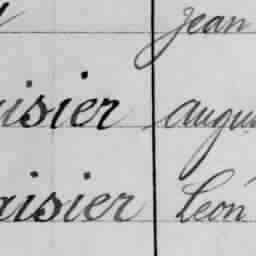 Jean
isier augu
aisier Léon